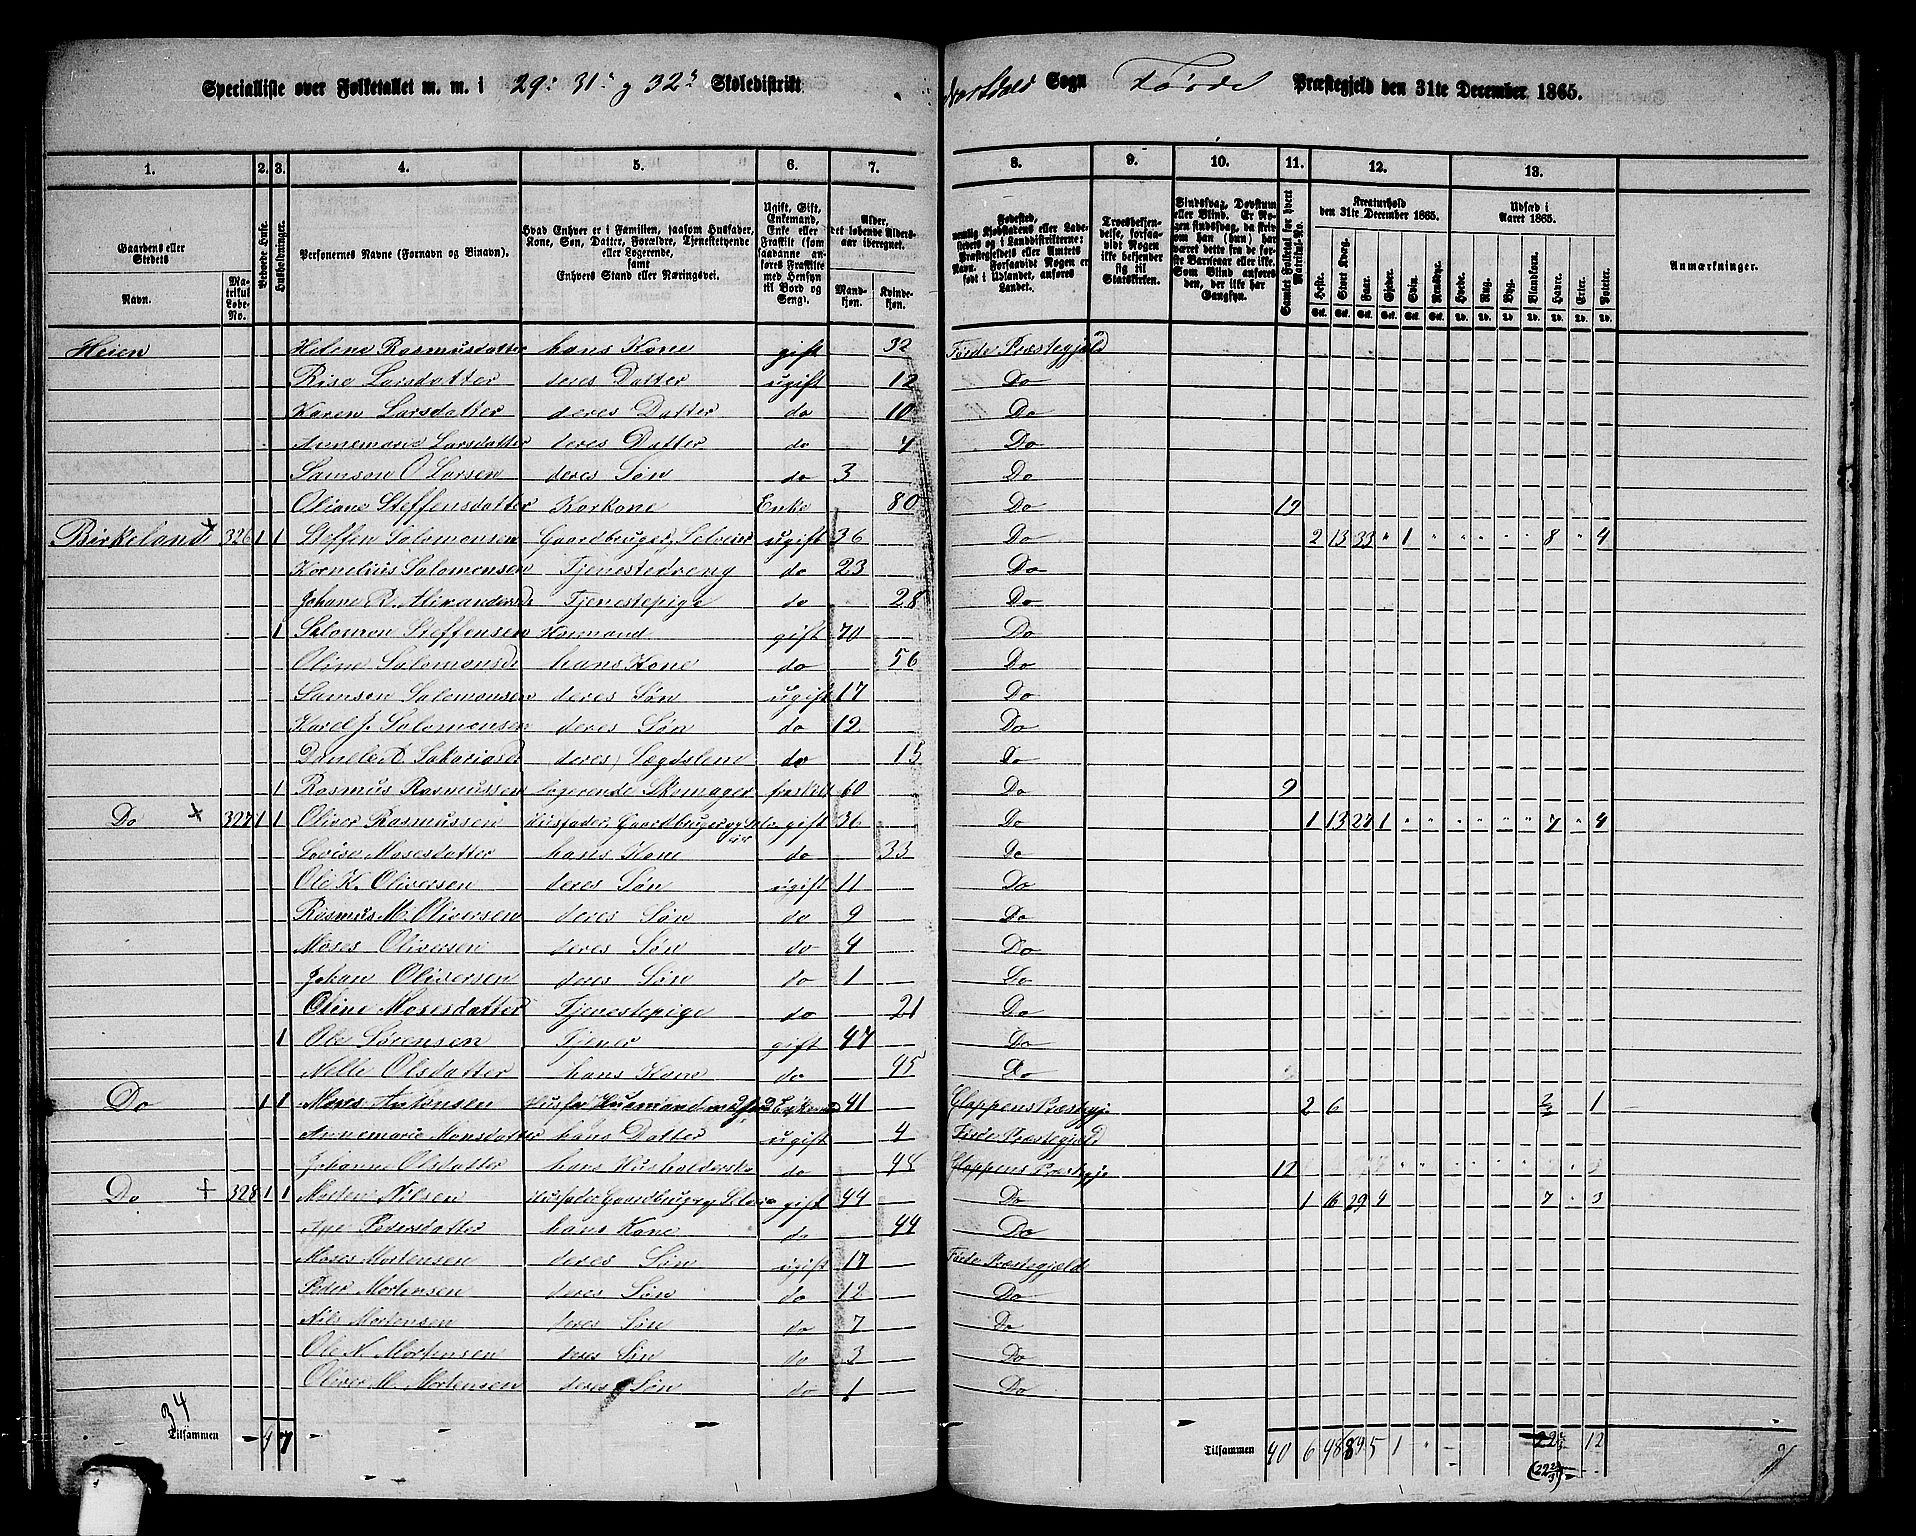 Specialliste over Folketallet m. m. i 29. 31 og 32 Skoledistrikt Sogn Førde Præstegjeld den 31te December 1865.
1. 2. 3. 4. 5. 6. 7. 8. 9. 10. 11. 12. 13.
Gaardens eller Stedets Navn. Matrikul Løbe-No. Beboede Huse. Husholdninger. Personernes Navne (Fornavn og Binavn). Hvad Enhver er i Familien, saasom Husfader, Kone, Søn, Datter, Forældre, Tjenestetyende eller Logerende, samt Enhvers Stand eller Næringsvei.
Ugift, Gift, Enkemand, Enke eller Fraskilt (saavanne anføres Fraskilte med Hensyn til Bord og Seng). Alder, det løbende Aldersaar iberegnet. Mandkjøn. Kvindekjøn.
Fødested, Troesbekjendelse, forsaavidt Nogen ikke bekjender sig til Statskirken. Samlet Folketal for hvert Matrikul-No.
Kreaturhold den 31te December 1865. Heste. Stort Kvæg. Faar. Gjeder. Svin. Rensdyr.
Udsæd i Aaret 1865. Hvede. Rug. Byg. Blandkorn. Havre. Erter. Poteter. Anmærkninger.
Heien Helene Rasmusdatter hans Kone gift 32 Førde Præstegjeld
Larsdatter deres Datter ugift 12 Do
Karen Larsdatter deres Datter do 10 Do
Annemarie Larsdatter deres Datter do 4 Do
Samson O Larsen deres Søn do 3 Do
Oliane Steffensdatter Korkone Enke 80 Do 12
Birkeland 326 1 1 Steffen Salomonsen Gaardbruger, Selveier ugift 36 Do 2 13 33 " 1 " " " " " 8 " 4
Kornelius Salomonsen Tjenestedreng do 23 Do
Johane R. Alexandersd Tjenestepige do 28 Do
1 Salomon Steffensen gift 70 Do
Oline Salomonsd hans Kone do 56 Do
Samson Salomonsen deres Søn ugift 17 Do
Karel J. Salomonsen deres Søn do 12 Do
Sakariasd deres Lægdslem do 15 Do
1 Rasmus Rasmussen logerende Skomager fraskilt 60 Do 9
Do 327 1 1 Oliver Rasmussen Husfader, Gaardbruger og Selveier gift 36 Do 1 13 27 1 " " " " " " 7 " 4
Lovise Mosesdatter hans Kone do 33 Do
Ole K. Oliversen deres Søn ugift 11 Do
Rasmus M. Oliversen deres Søn do 9 Do
Moses Oliversen deres Søn do 4 Do
Johan Oliversen deres Søn do 1 Do
Oline Mosesdatter Tjenestepige do 21 Do
1 Ole Sørensen Tjener gift 47 Do
Nille Olsdatter hans Kone do 45 Do
Do 1 1 Moses Antonsen Husfar Husmand med Jord Enkemand 41 Gloppens Præstegj 2 6 2/3 1
Annemarie Monsdatter hans Datter ugift 4 Førde Præstegjeld
Johanne Olsdatter hans Husholderske do 45 Gloppens Præstegj 12
Do 328 1 1 Morten Nilsen Husfader, Gaardbrug og Selveier gift 44 Do 1 16 29 4 7 " 3
Pedersdatter hans Kone do 44 Do
Moses Mortensen deres Søn ugift 17 Førde Præstegjeld
Peder Mortensen deres Søn do 12 Do
Nils Mortensen deres Søn do 7 Do
Ole N. Mortensen deres Søn do 3 Do
Oliver M. Mortensen deres Søn do 1 Do
34
Tilsammen 4 7 Tilsammen 40 6 48 89 5 1 12
(22 2/3)